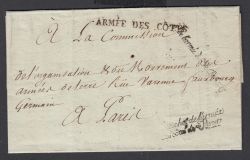 ARMÉE DES CÔTES
A La Commission
de l'organisation & du Mouvement des
armées de terre Rüe Varenne fauxbourg
Germain
A Paris